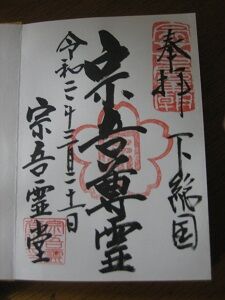 奉拝
下総国
宗吾尊霊
令和二年三月二十一日
宗吾霊堂